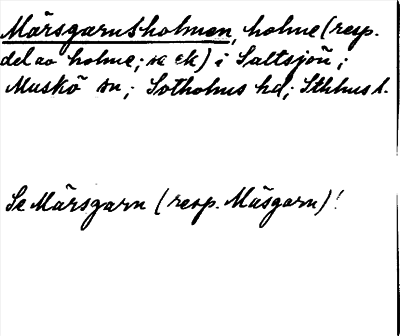 Märsgarnsholmen, holme (resp.
del av holme; se ek) i Saltsjön;
Muskö sn; Sotholms hd; Sthlms l.
Se Märsgarn (resp. Mäsgarn)!